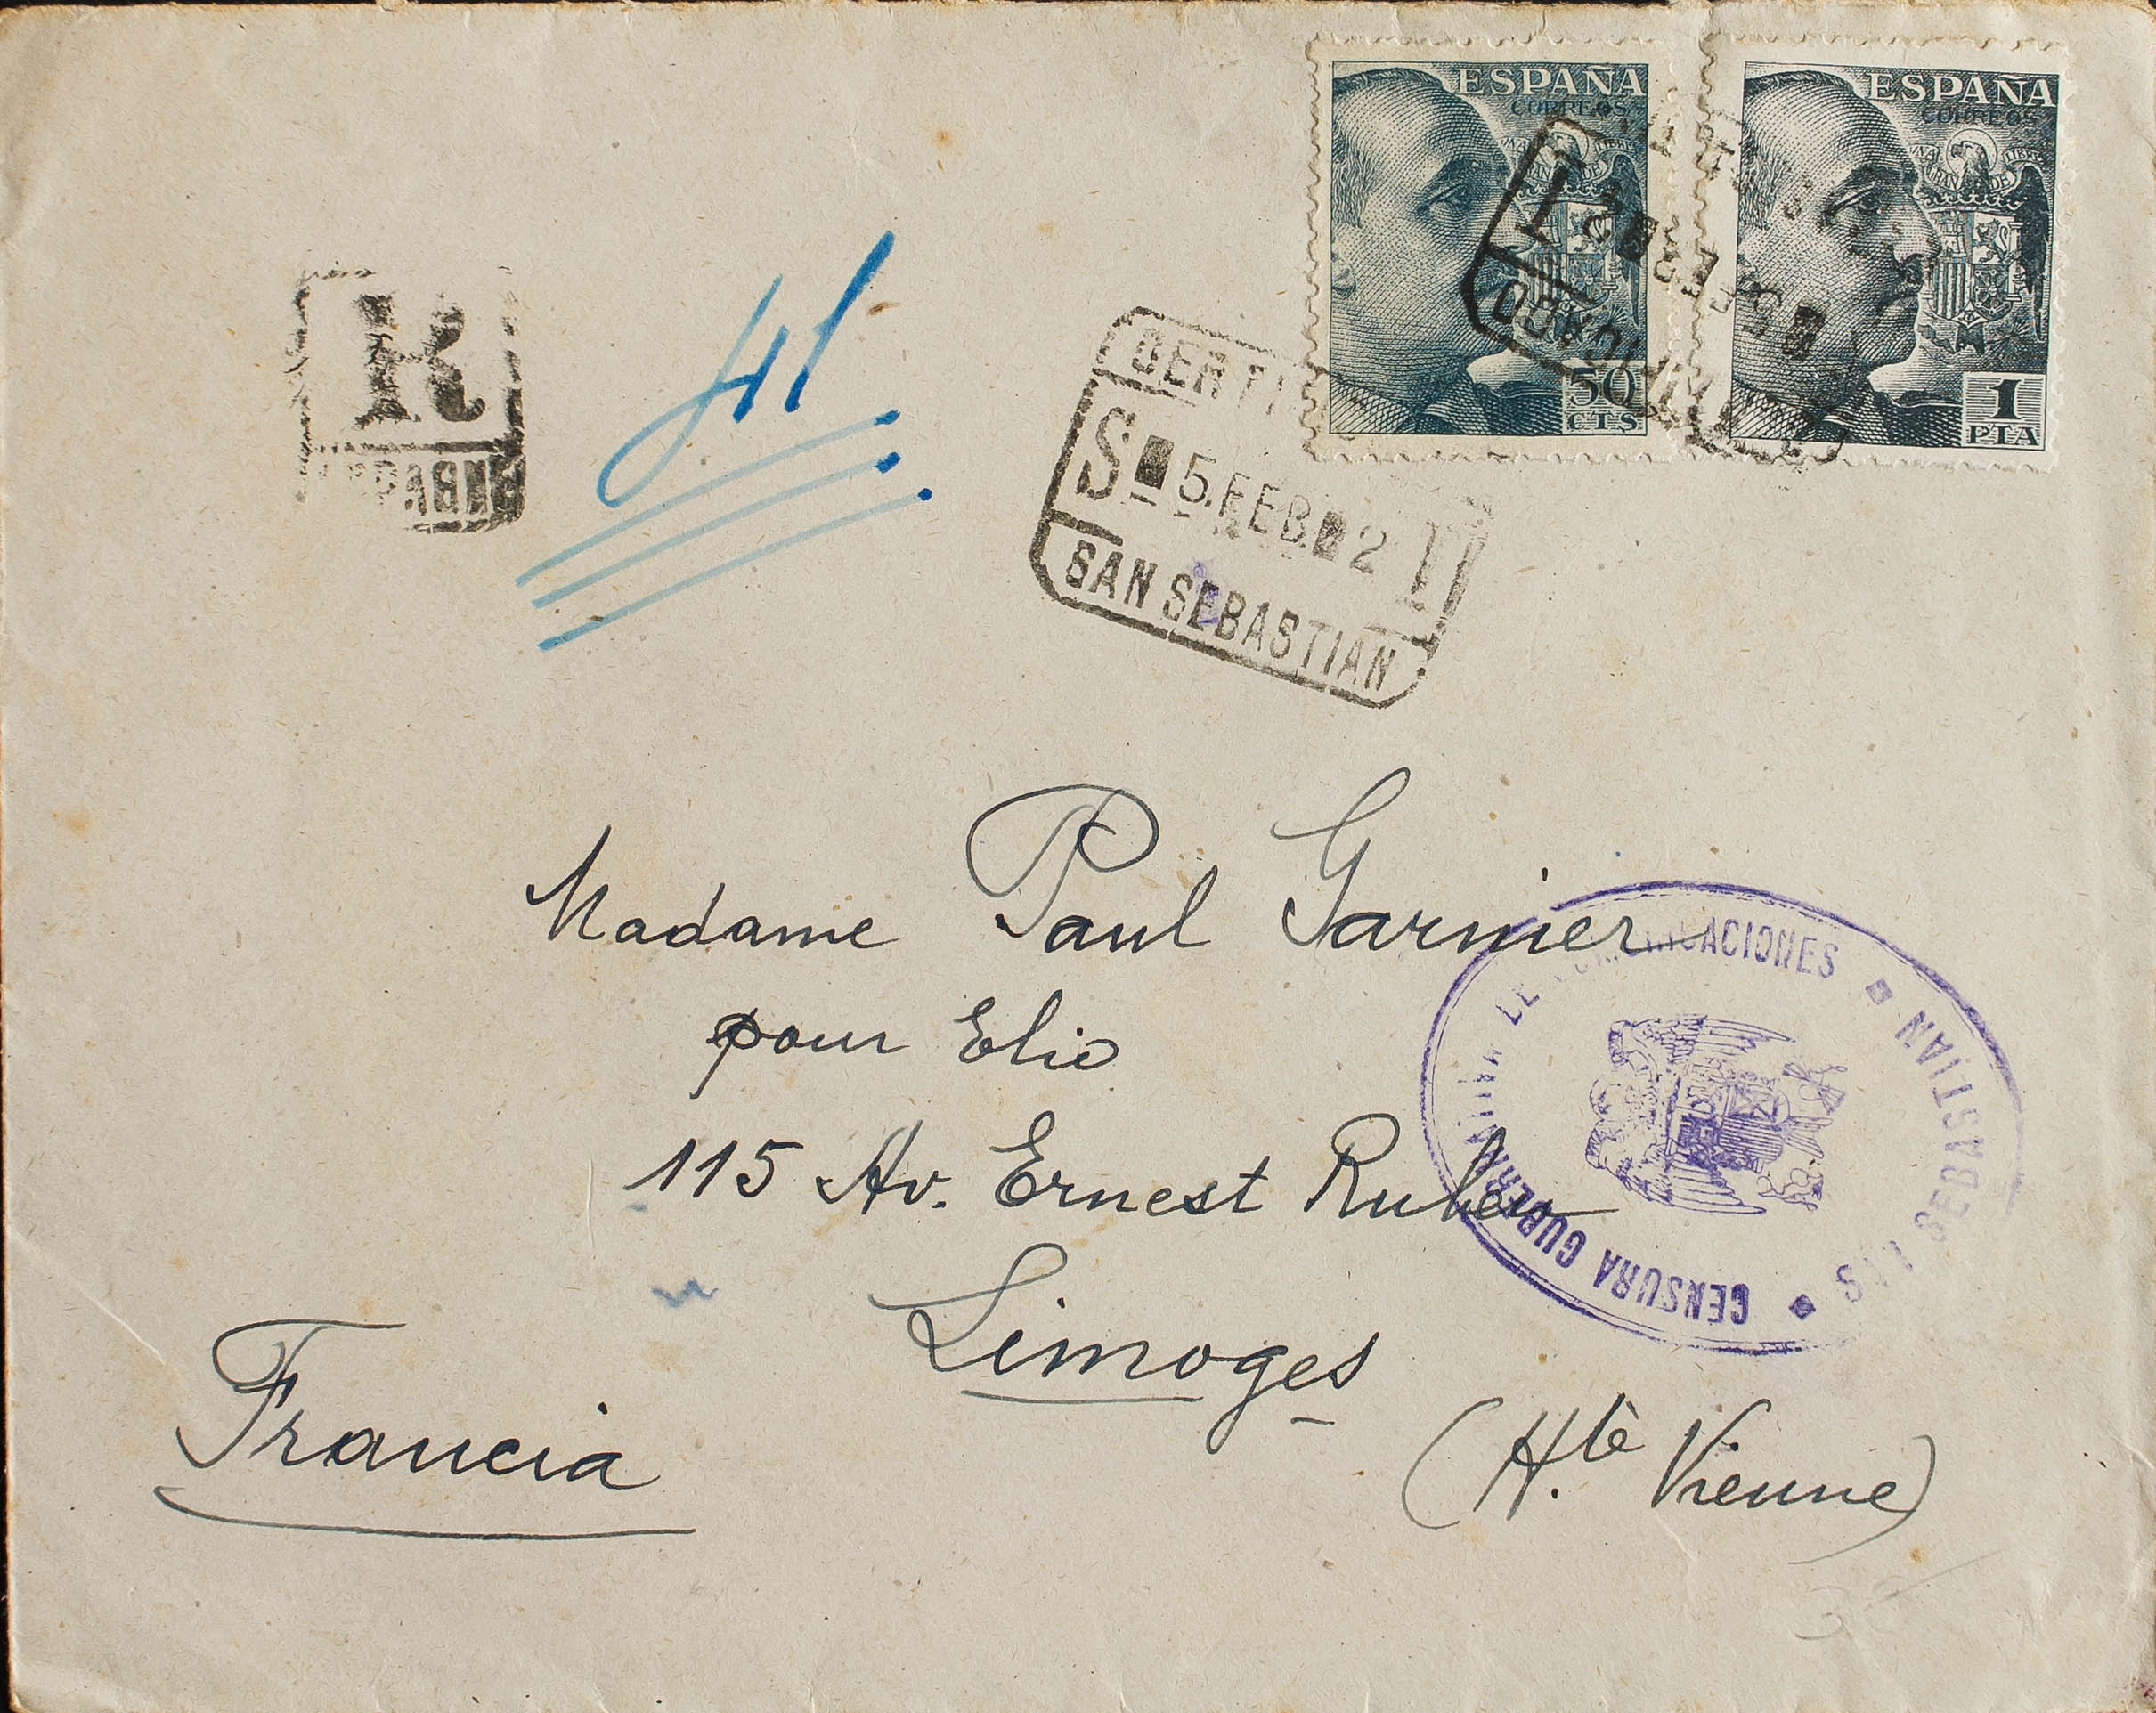 ESPAÑA
CORREOS
50
CTS
ESPAÑA
CORREOS
1
PTA
R
41
CERTI
S 5.FEB. 2 T
SAN SEBASTIAN
Madame Paul Garnier
pour Elie
115 Av. Ernest Ruben
Limoges
(H.te Vienne)
Francia
CENSURA GUBERNATIVA DE COMUNICACIONES
SAN SEBASTIAN